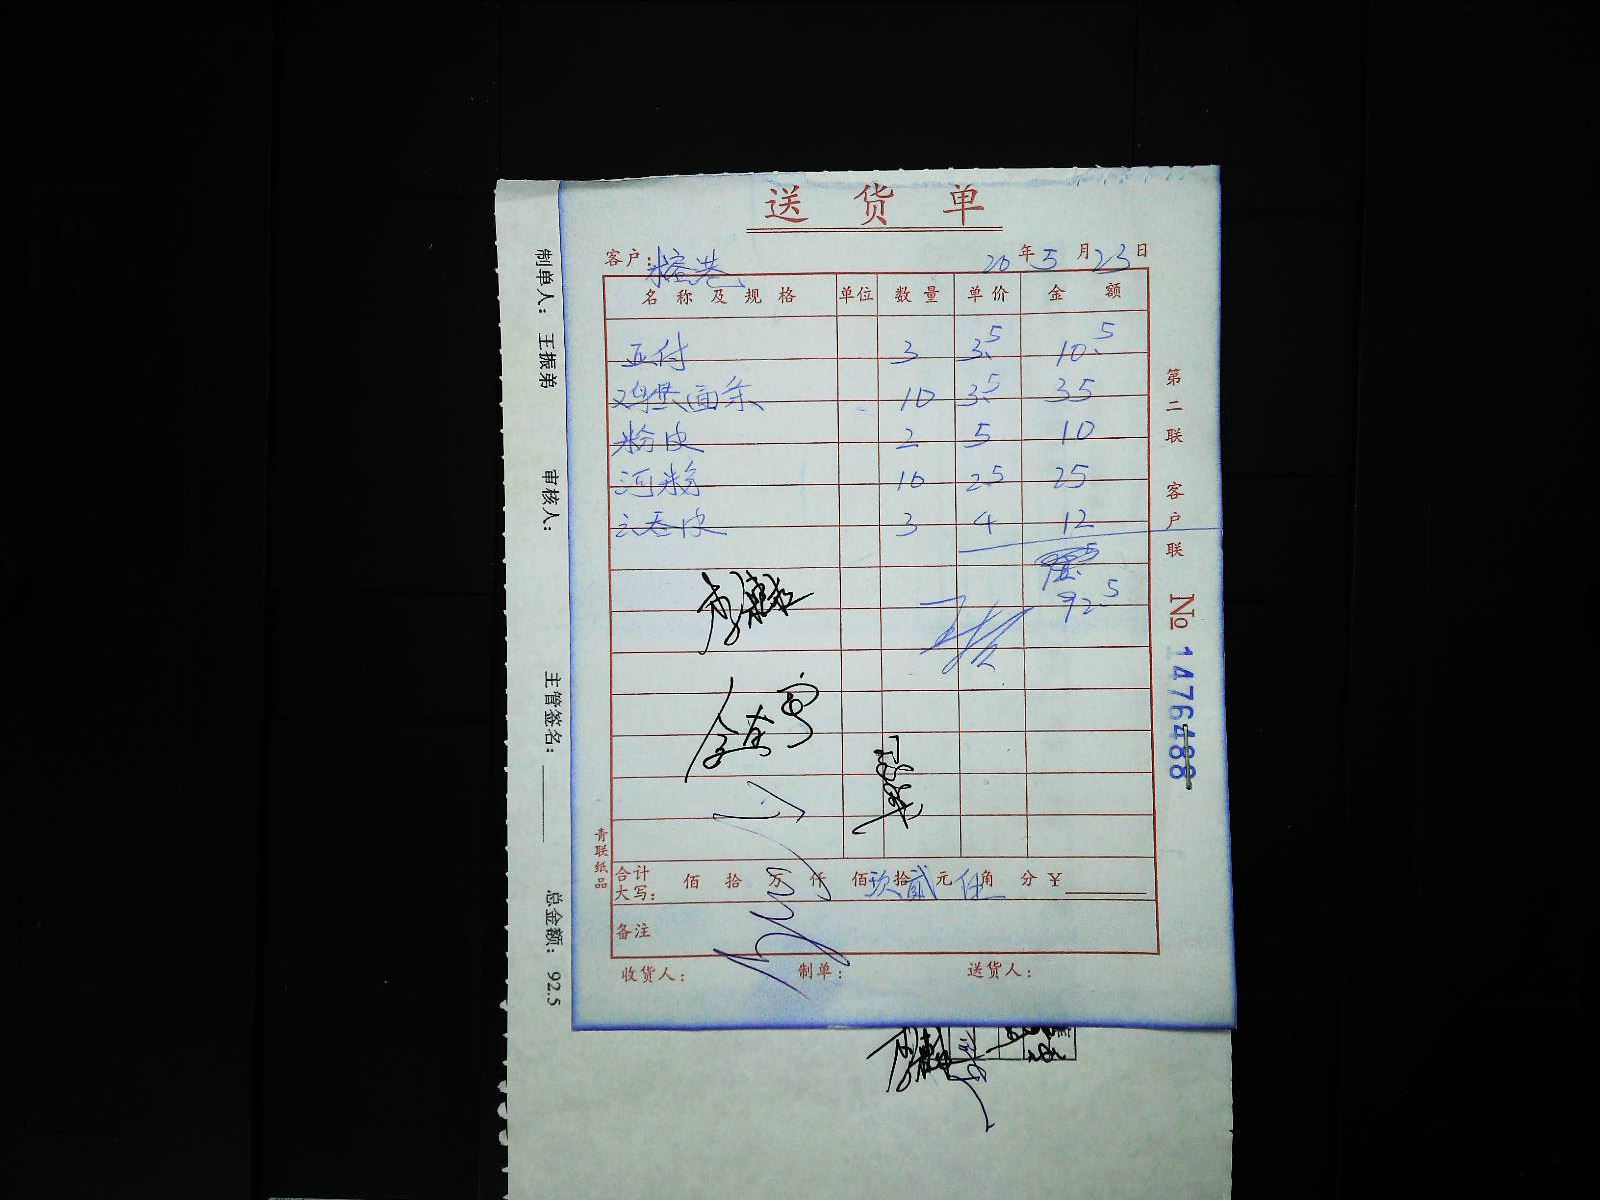 送货单
客户: 榕巷 20年5月23日
名称及规格 单位 数量 单价 金额
豆付 3 3.5 10.5
鸡蛋面条 10 3.5 35
粉皮 2 5 10
河粉 10 2.5 25
云吞皮 3 4 12
92.5
合计大写: 佰 拾 万 仟 佰 玖拾 贰元 伍角 分 ¥
备注
收货人: 制单: 送货人:
青联纸品
第二联 客户联 No 1476488
制单人: 王振弟 审核人: 主管签名: 总金额: 92.5